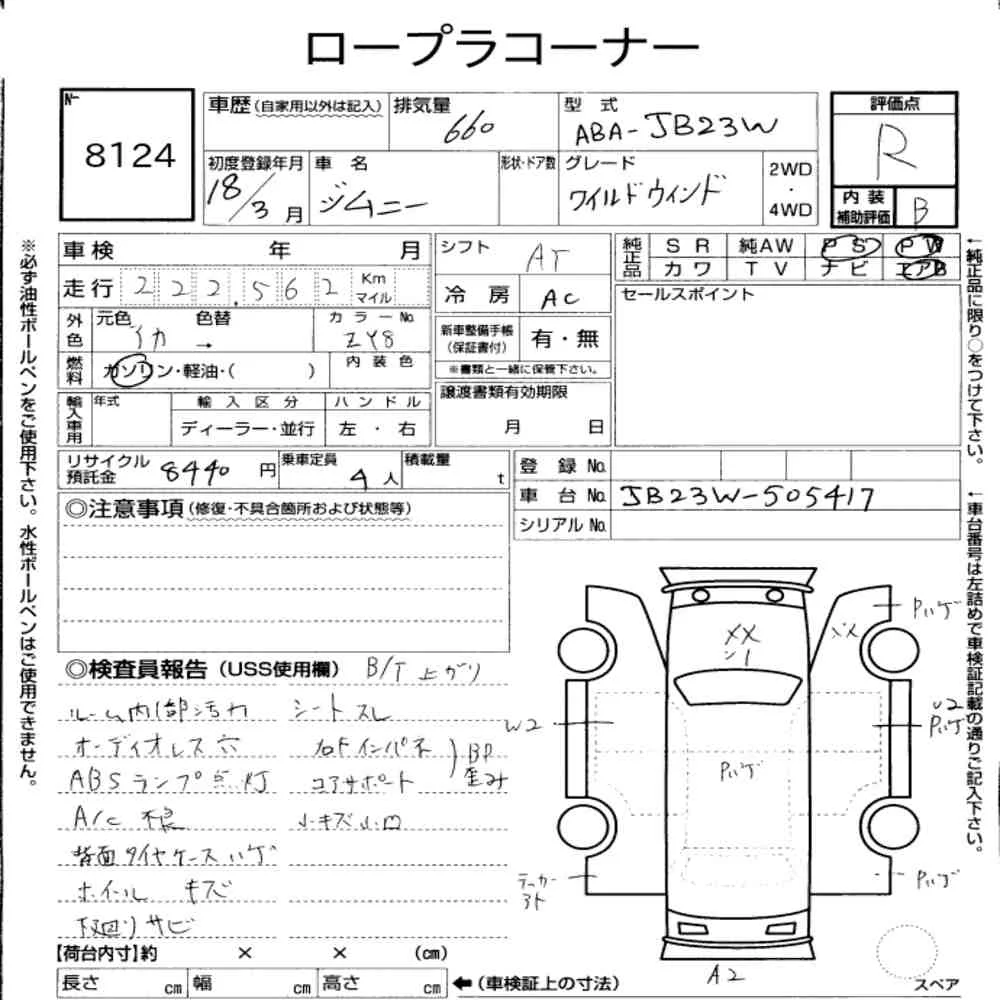 ロープラコーナー
№ 8124
車歴(自家用以外は記入) 排気量 660 型式 ABA-JB23W 評価点 R
初度登録年月 18/3月 車名 ジムニー 形状・ドア数 グレード ワイルドウインド 2WD・4WD
内装補助評価 B
車検 年 月
走行 222,562 Km マイル
外色 元色 色替 カラーNo. ZY8
→
燃料 ガソリン・軽油・( ) 内装色
輸入車用 年式 輸入区分 ハンドル
ディーラー・並行 左・右
シフト AT
冷房 AC
新車整備手帳(保証書付) 有・無
※書類と一緒に保管下さい。
譲渡書類有効期限
月 日
純正品 SR 純AW PS PW
カワ TV ナビ エアB
セールスポイント
リサイクル預託金 8440円 乗車定員 4人 積載量 t
登録No.
車台No. JB23W-505417
シリアルNo.
◎注意事項(修復・不具合箇所および状態等)
◎検査員報告(USS使用欄) B/T上がり
ルーム内部汚れ シートスレ
オーディオレス穴 右Fインパネ
ABSランプ点灯 コアサポート
BP歪み
A/C不良 小キズ小凹
背面タイヤケースハゲ
ホイール キズ
下回りサビ
【荷台内寸】約 × × (cm)
長さ cm 幅 cm 高さ cm ←(車検証上の寸法)
※必ず油性ボールペンをご使用下さい。水性ボールペンはご使用できません。
←純正品に限り○をつけて下さい。
←車台番号は左詰めで車検証記載の通りご記入下さい。
Pハゲ
XX
W2
U2
Pハゲ
Pハゲ
Pハゲ
A2
スペア